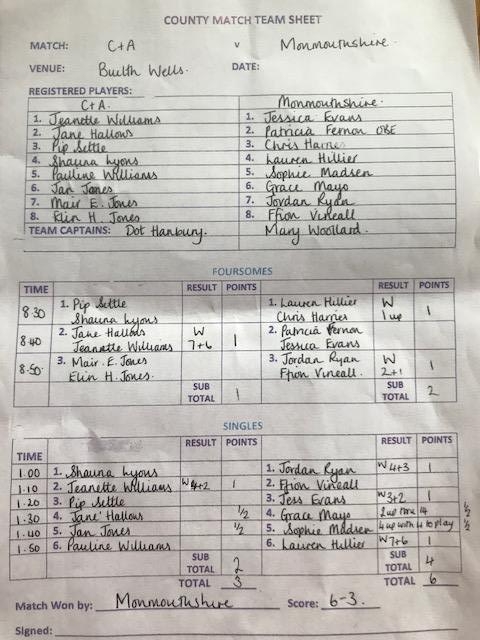 COUNTY MATCH TEAM SHEET
MATCH: C+A v Monmouthshire.
VENUE: Builth Wells. DATE:
REGISTERED PLAYERS:
C+A. Monmouthshire.
1. Jeanette Williams 1. Jessica Evans
2. Jane Hallows 2. Patricia Fernon OBE
3. Pip Settle 3. Chris Harries
4. Shauna Lyons 4. Lauren Hillier
5. Pauline Williams 5. Sophie Madsen
6. Jan Jones 6. Grace Mayo
7. Mair E. Jones 7. Jordan Ryan
8. Elin H. Jones 8. Ffion Vineall
TEAM CAPTAINS: Dot Hanbury. Mary Woollard.
FOURSOMES
TIME RESULT POINTS RESULT POINTS
8.30 1. Pip Settle 1. Lauren Hillier W 1
Shauna Lyons Chris Harries 1 up
8.40 2. Jane Hallows W 1 2. Patricia Fernon
Jeanette Williams 7+6 Jessica Evans
8.50. 3. Mair. E. Jones 3. Jordan Ryan W 1
Elin H. Jones. Ffion Vineall. 2+1
SUB TOTAL 1 SUB TOTAL 2
SINGLES
TIME RESULT POINTS RESULT POINTS
1.00 1. Shauna Lyons 1. Jordan Ryan W 4+3 1
1.10 2. Jeanette Williams W 4+2 1 2. Ffion Vineall
1.20 3. Pip Settle 3. Jess Evans W 3+2 1
1.30 4. Jane Hallows 1/2 4. Grace Mayo 2up thru 14 1/2
1.40 5. Jan Jones 1/2 5. Sophie Madsen 4 up with 4 to play 1/2
1.50 6. Pauline Williams 6. Lauren Hillier W 7+6 1
SUB TOTAL 2 SUB TOTAL 4
TOTAL 3 TOTAL 6
Match Won by: Monmouthshire Score: 6-3.
Signed: